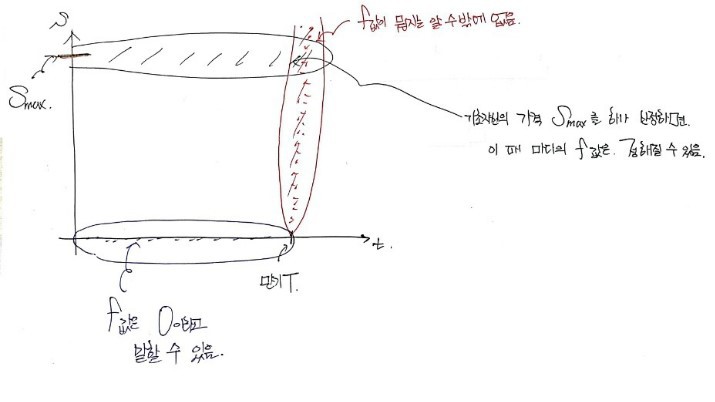 S
f값이 뭔지는 알 수밖에 없음.
Smax.
기초자산의 가격 Smax를 하나 한정하면.
이 때 마디의 f값은. 구해질 수 있음.
t.
만기 T.
f값은 0이라고
말할 수 있음.